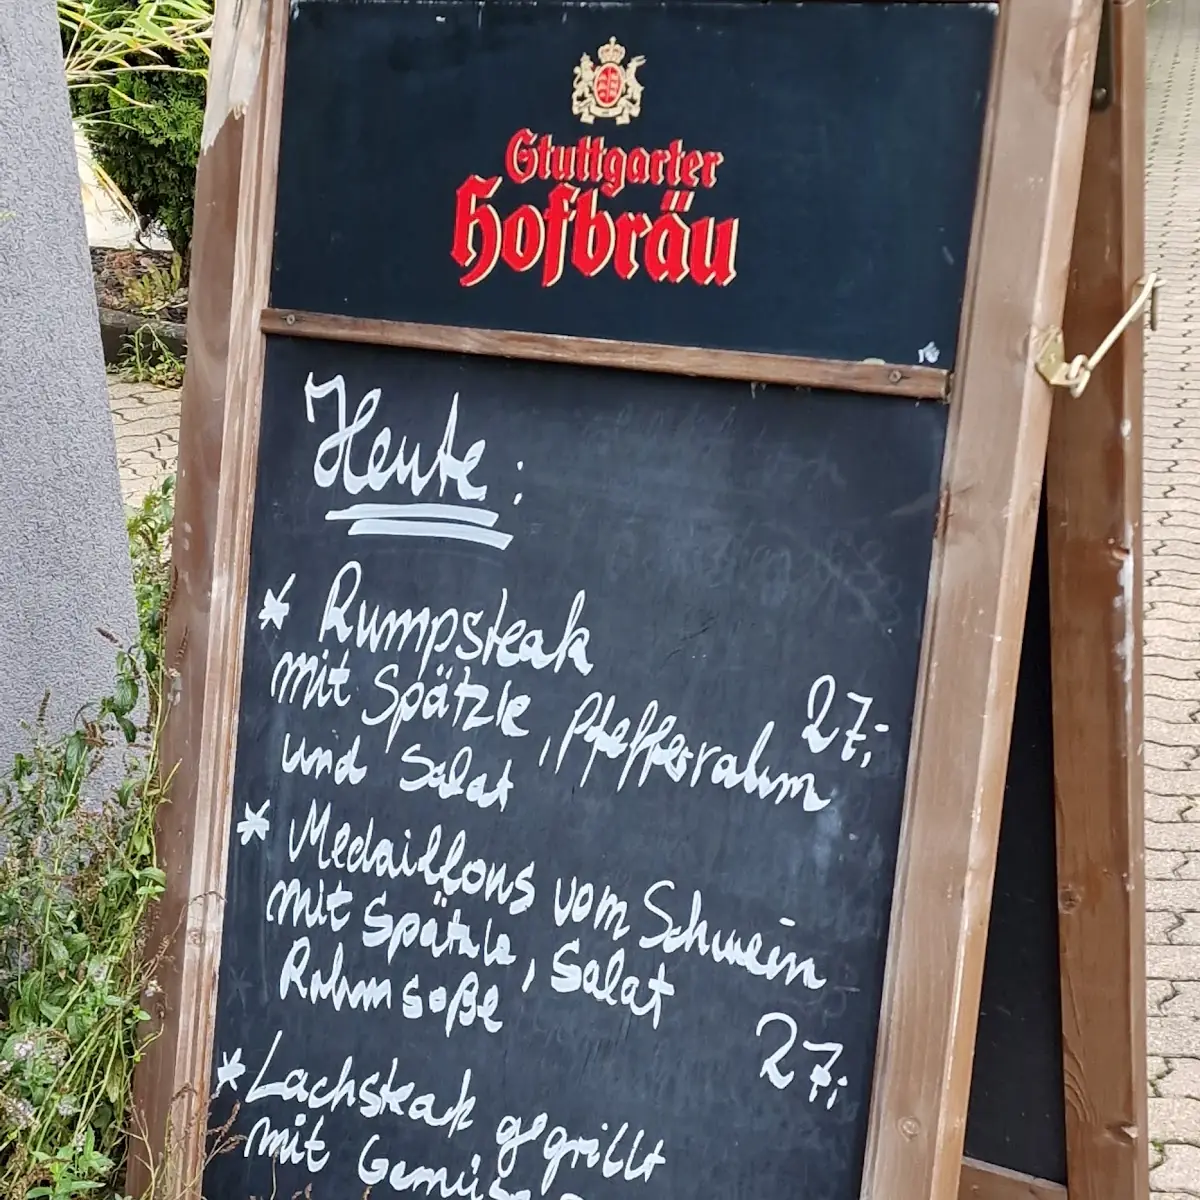 Stuttgarter
Hofbräu
Heute:
* Rumpsteak
mit Spätzle, Pfefferrahm 27,-
und Salat
* Medaillons vom Schwein
mit Spätzle, Salat
Rahmsoße 27,-
* Lachsteak gegrillt
mit